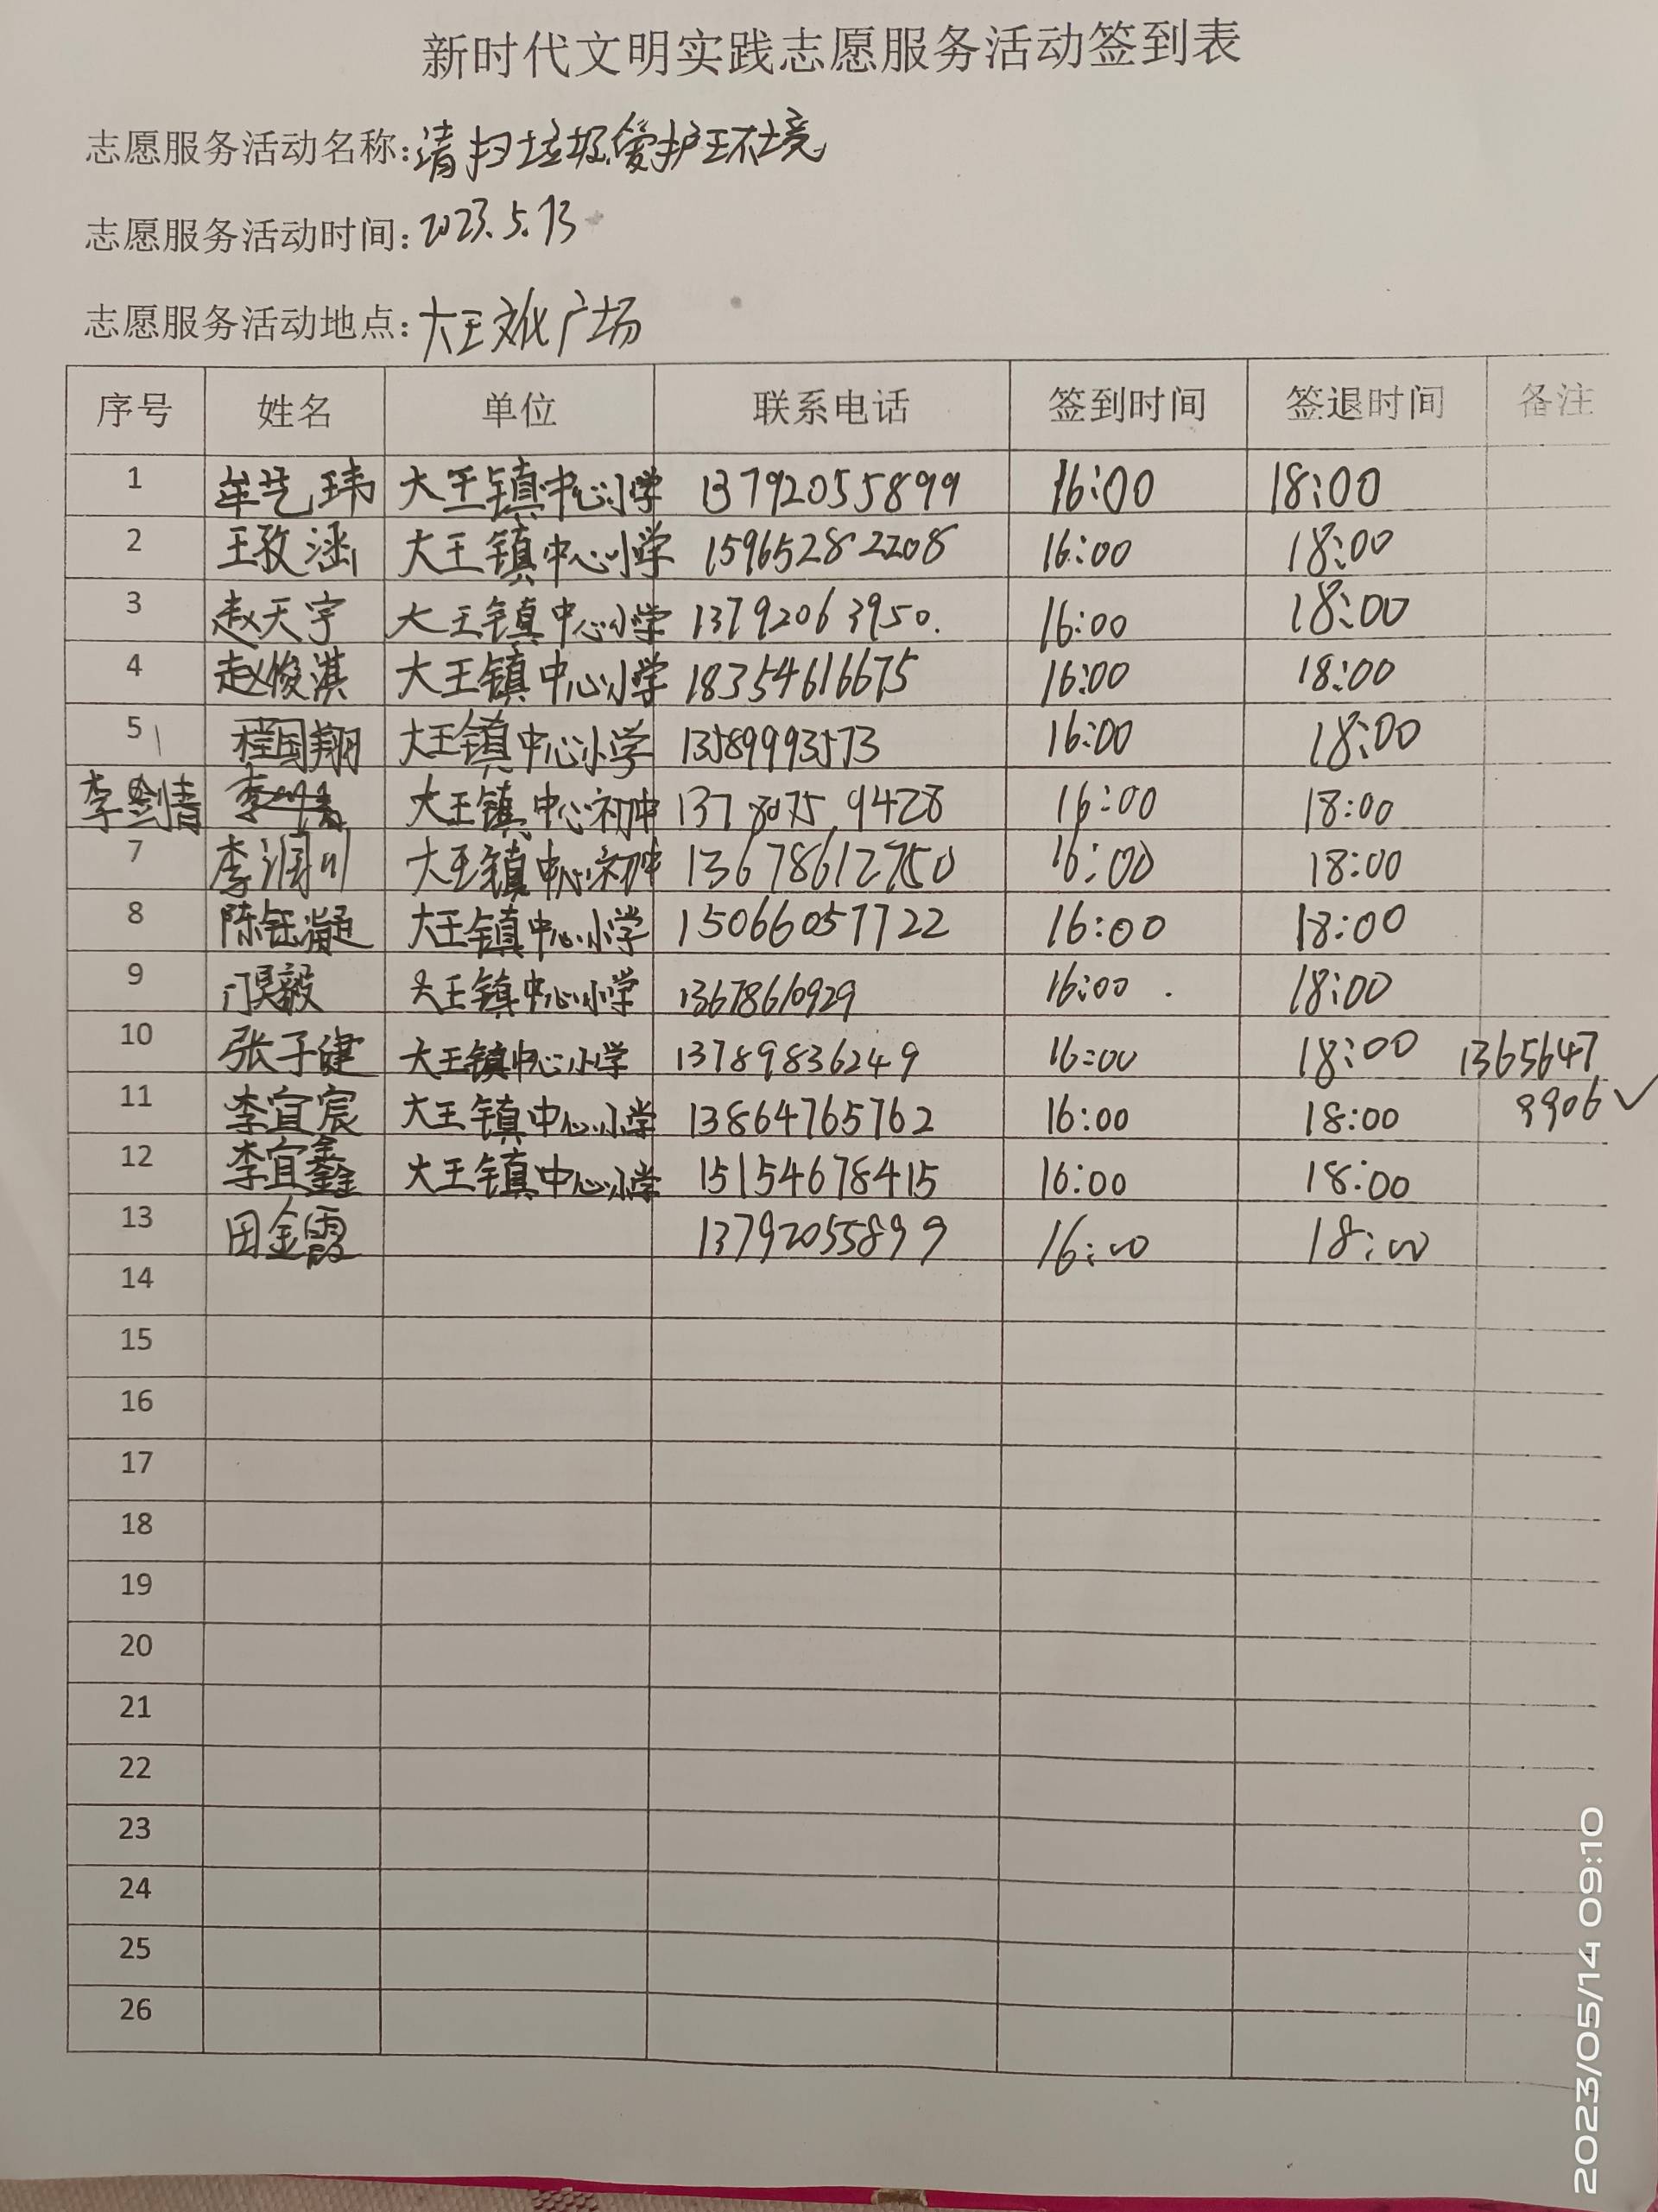 新时代文明实践志愿服务活动签到表
志愿服务活动名称:清扫垃圾爱护环境
志愿服务活动时间:2023.5.13
志愿服务活动地点:大王文化广场
序号 姓名 单位 联系电话 签到时间 签退时间 备注
1 牟艺玮 大王镇中心小学 13792055899 16:00 18:00
2 王孜涵 大王镇中心小学 15965282208 16:00 18:00
3 赵天宇 大王镇中心小学 13792063950. 16:00 18:00
4 赵俊淇 大王镇中心小学 18354616675 16:00 18:00
5 程国翔 大王镇中心小学 13589993573 16:00 18:00
李剑清 大王镇中心初中 13780759428 16:00 18:00
7 李润川 大王镇中心初中 13678612750 16:00 18:00
8 陈钰凝 大王镇中心小学 15066057722 16:00 18:00
9 大王镇中心小学 13678610929 16:00 18:00
10 张子健 大王镇中心小学 13789836249 16:00 18:00 1365647
11 李宜宸 大王镇中心小学 13864765762 16:00 18:00 9906 ✓
12 李宜鑫 大王镇中心小学 15154678415 16:00 18:00
13 田金霞 13792055899 16:00 18:00
14
15
16
17
18
19
20
21
22
23
24
25
26
2023/05/14 09:10